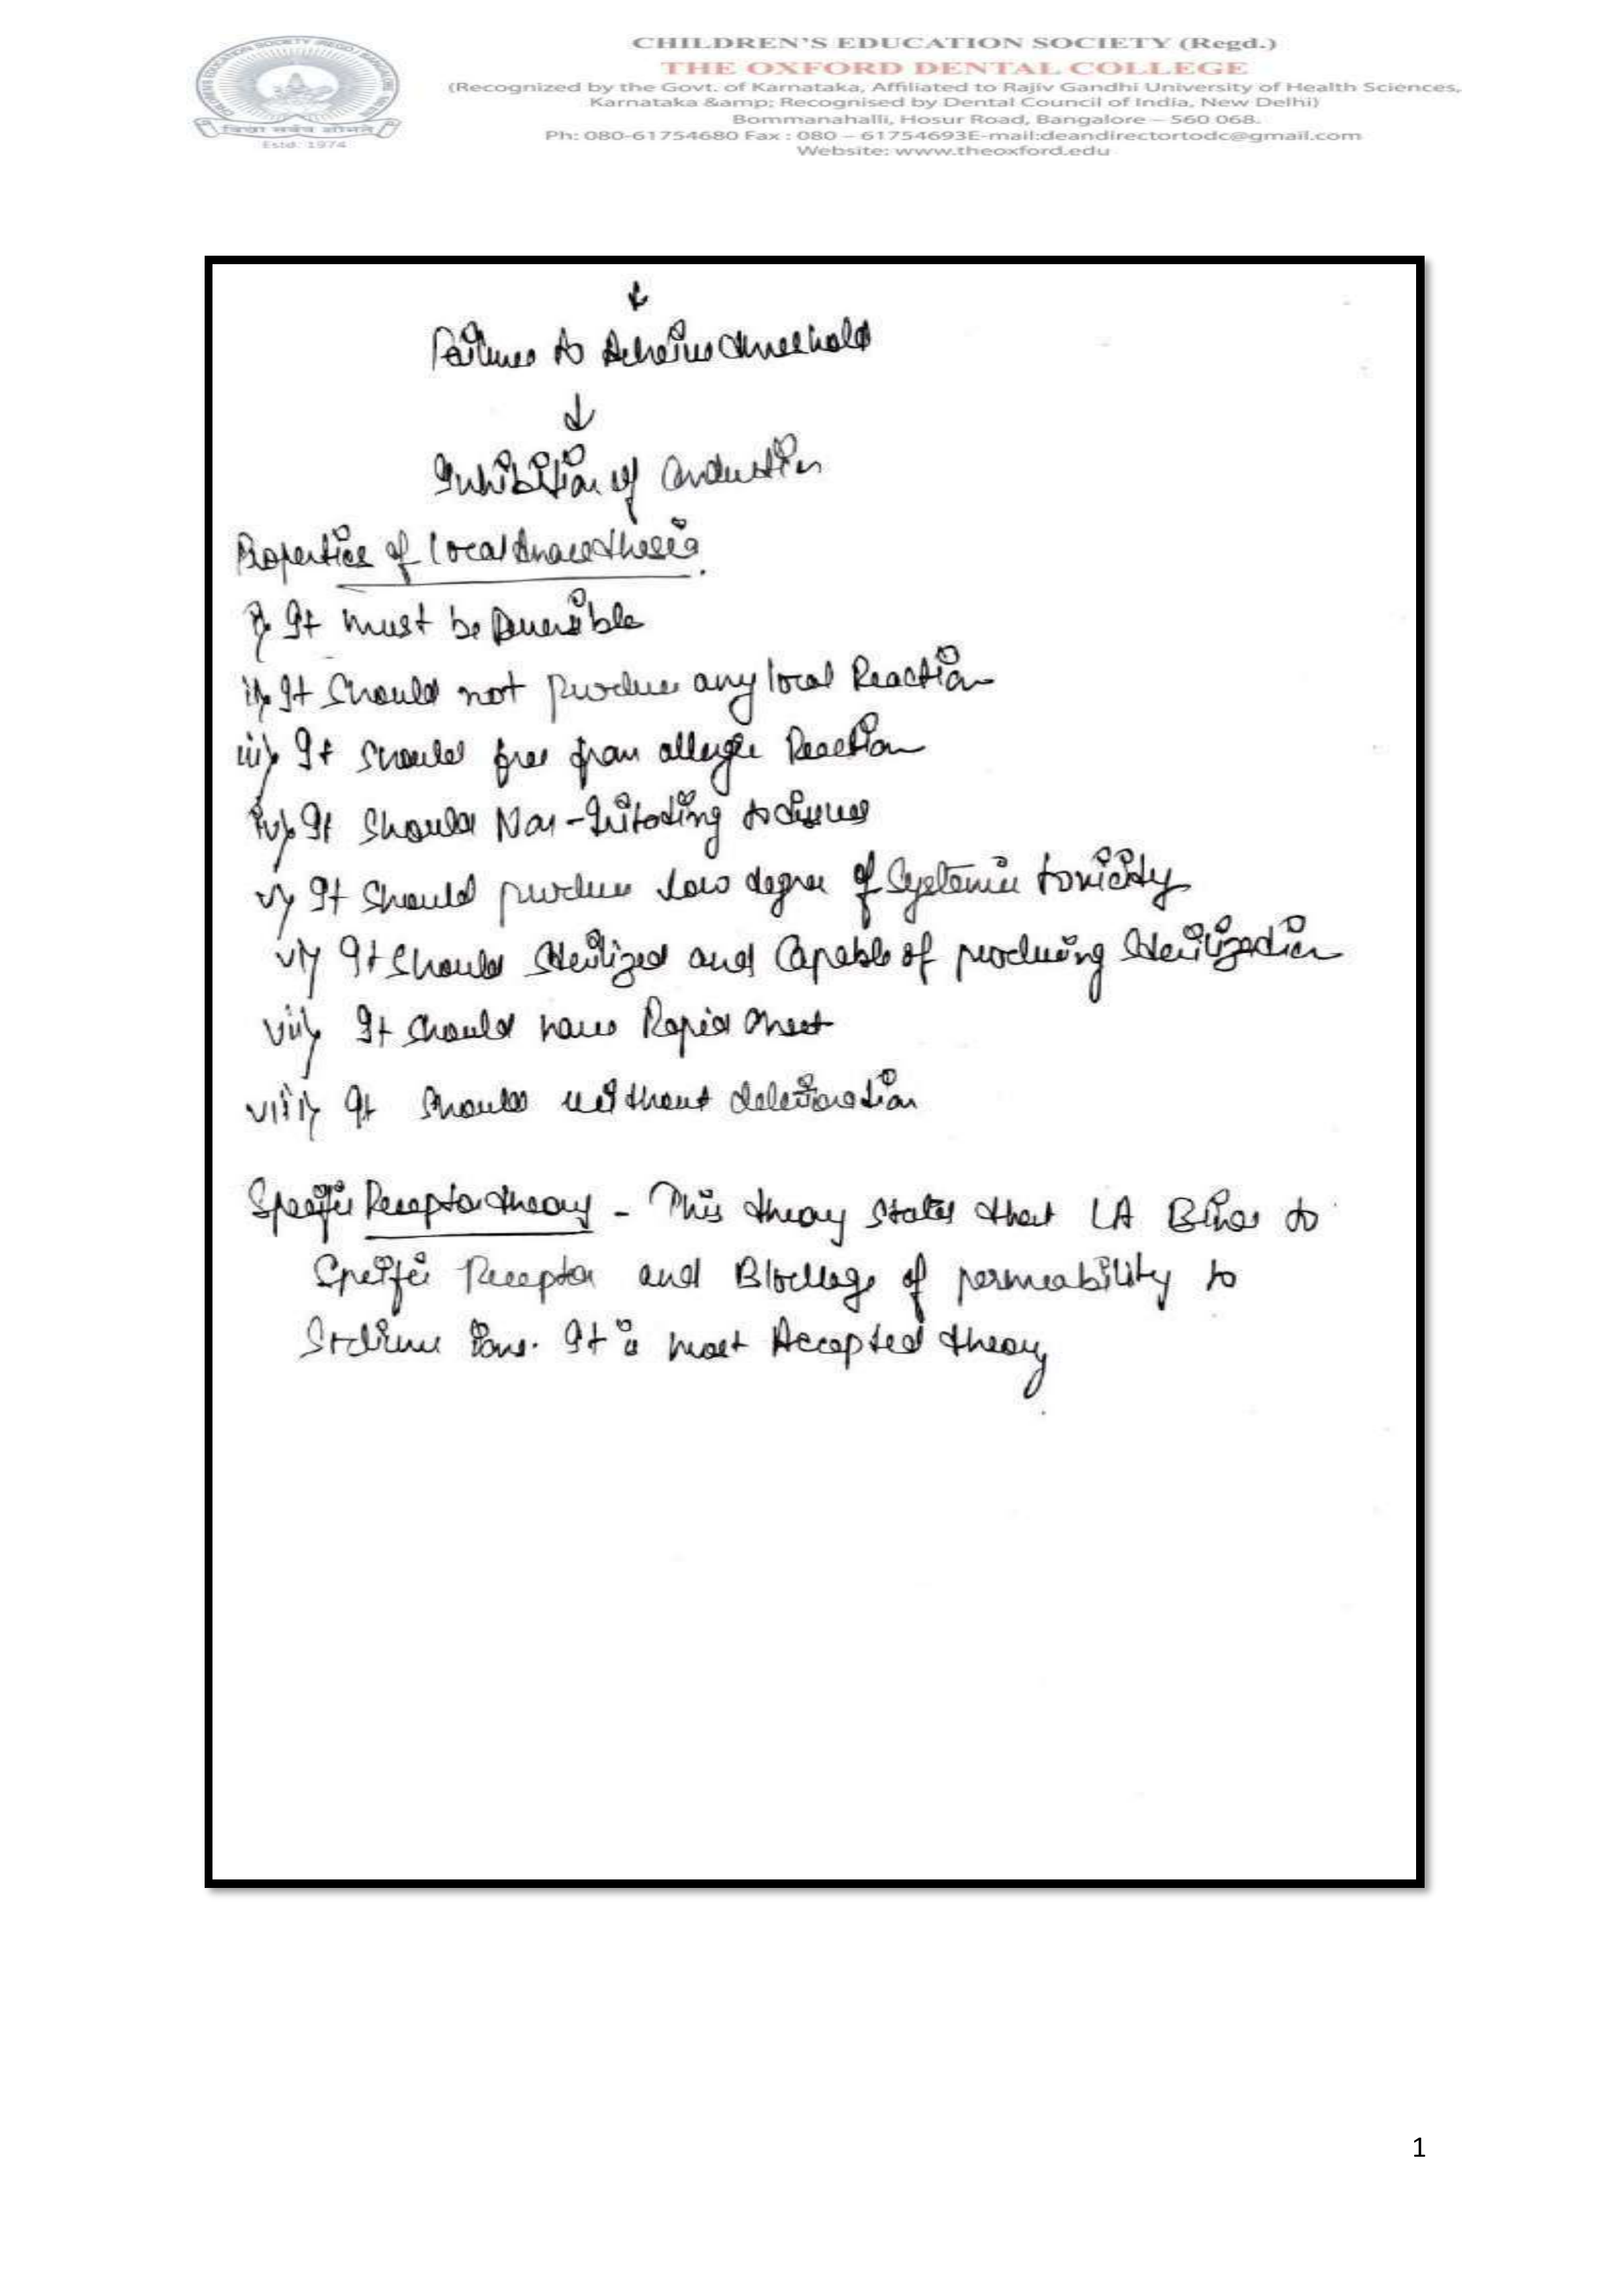 CHILDREN'S EDUCATION SOCIETY (Regd.)
THE OXFORD DENTAL COLLEGE
(Recognized by the Govt. of Karnataka, Affiliated to Rajiv Gandhi University of Health Sciences,
Karnataka &amp; Recognised by Dental Council of India, New Delhi)
Bommanahalli, Hosur Road, Bangalore – 560 068.
Ph: 080-61754680 Fax : 080 – 61754693E-mail:deandirectortodc@gmail.com
Website: www.theoxford.edu
Estd. 1974
↓
Failure to Acheive threshold
↓
Inhibition of Conduction
Properties of Local Anaesthesia.
i) It must be Reversible
ii) It Should not produce any local Reaction
iii) It should free from allergic Reaction
iv) It Should Non-Irritating to tissues
v) It Should produce low degree of Systemic toxicity
vi) It Should Sterilized and Capable of producing Sterilization
vii) It Should have Rapid Onset
viii) It Should without deterioration
Specific Receptor theory - This theory states that LA Binds to
Specific Receptor and Blockage of permeability to
Sodium Ions. It is most Accepted theory
1